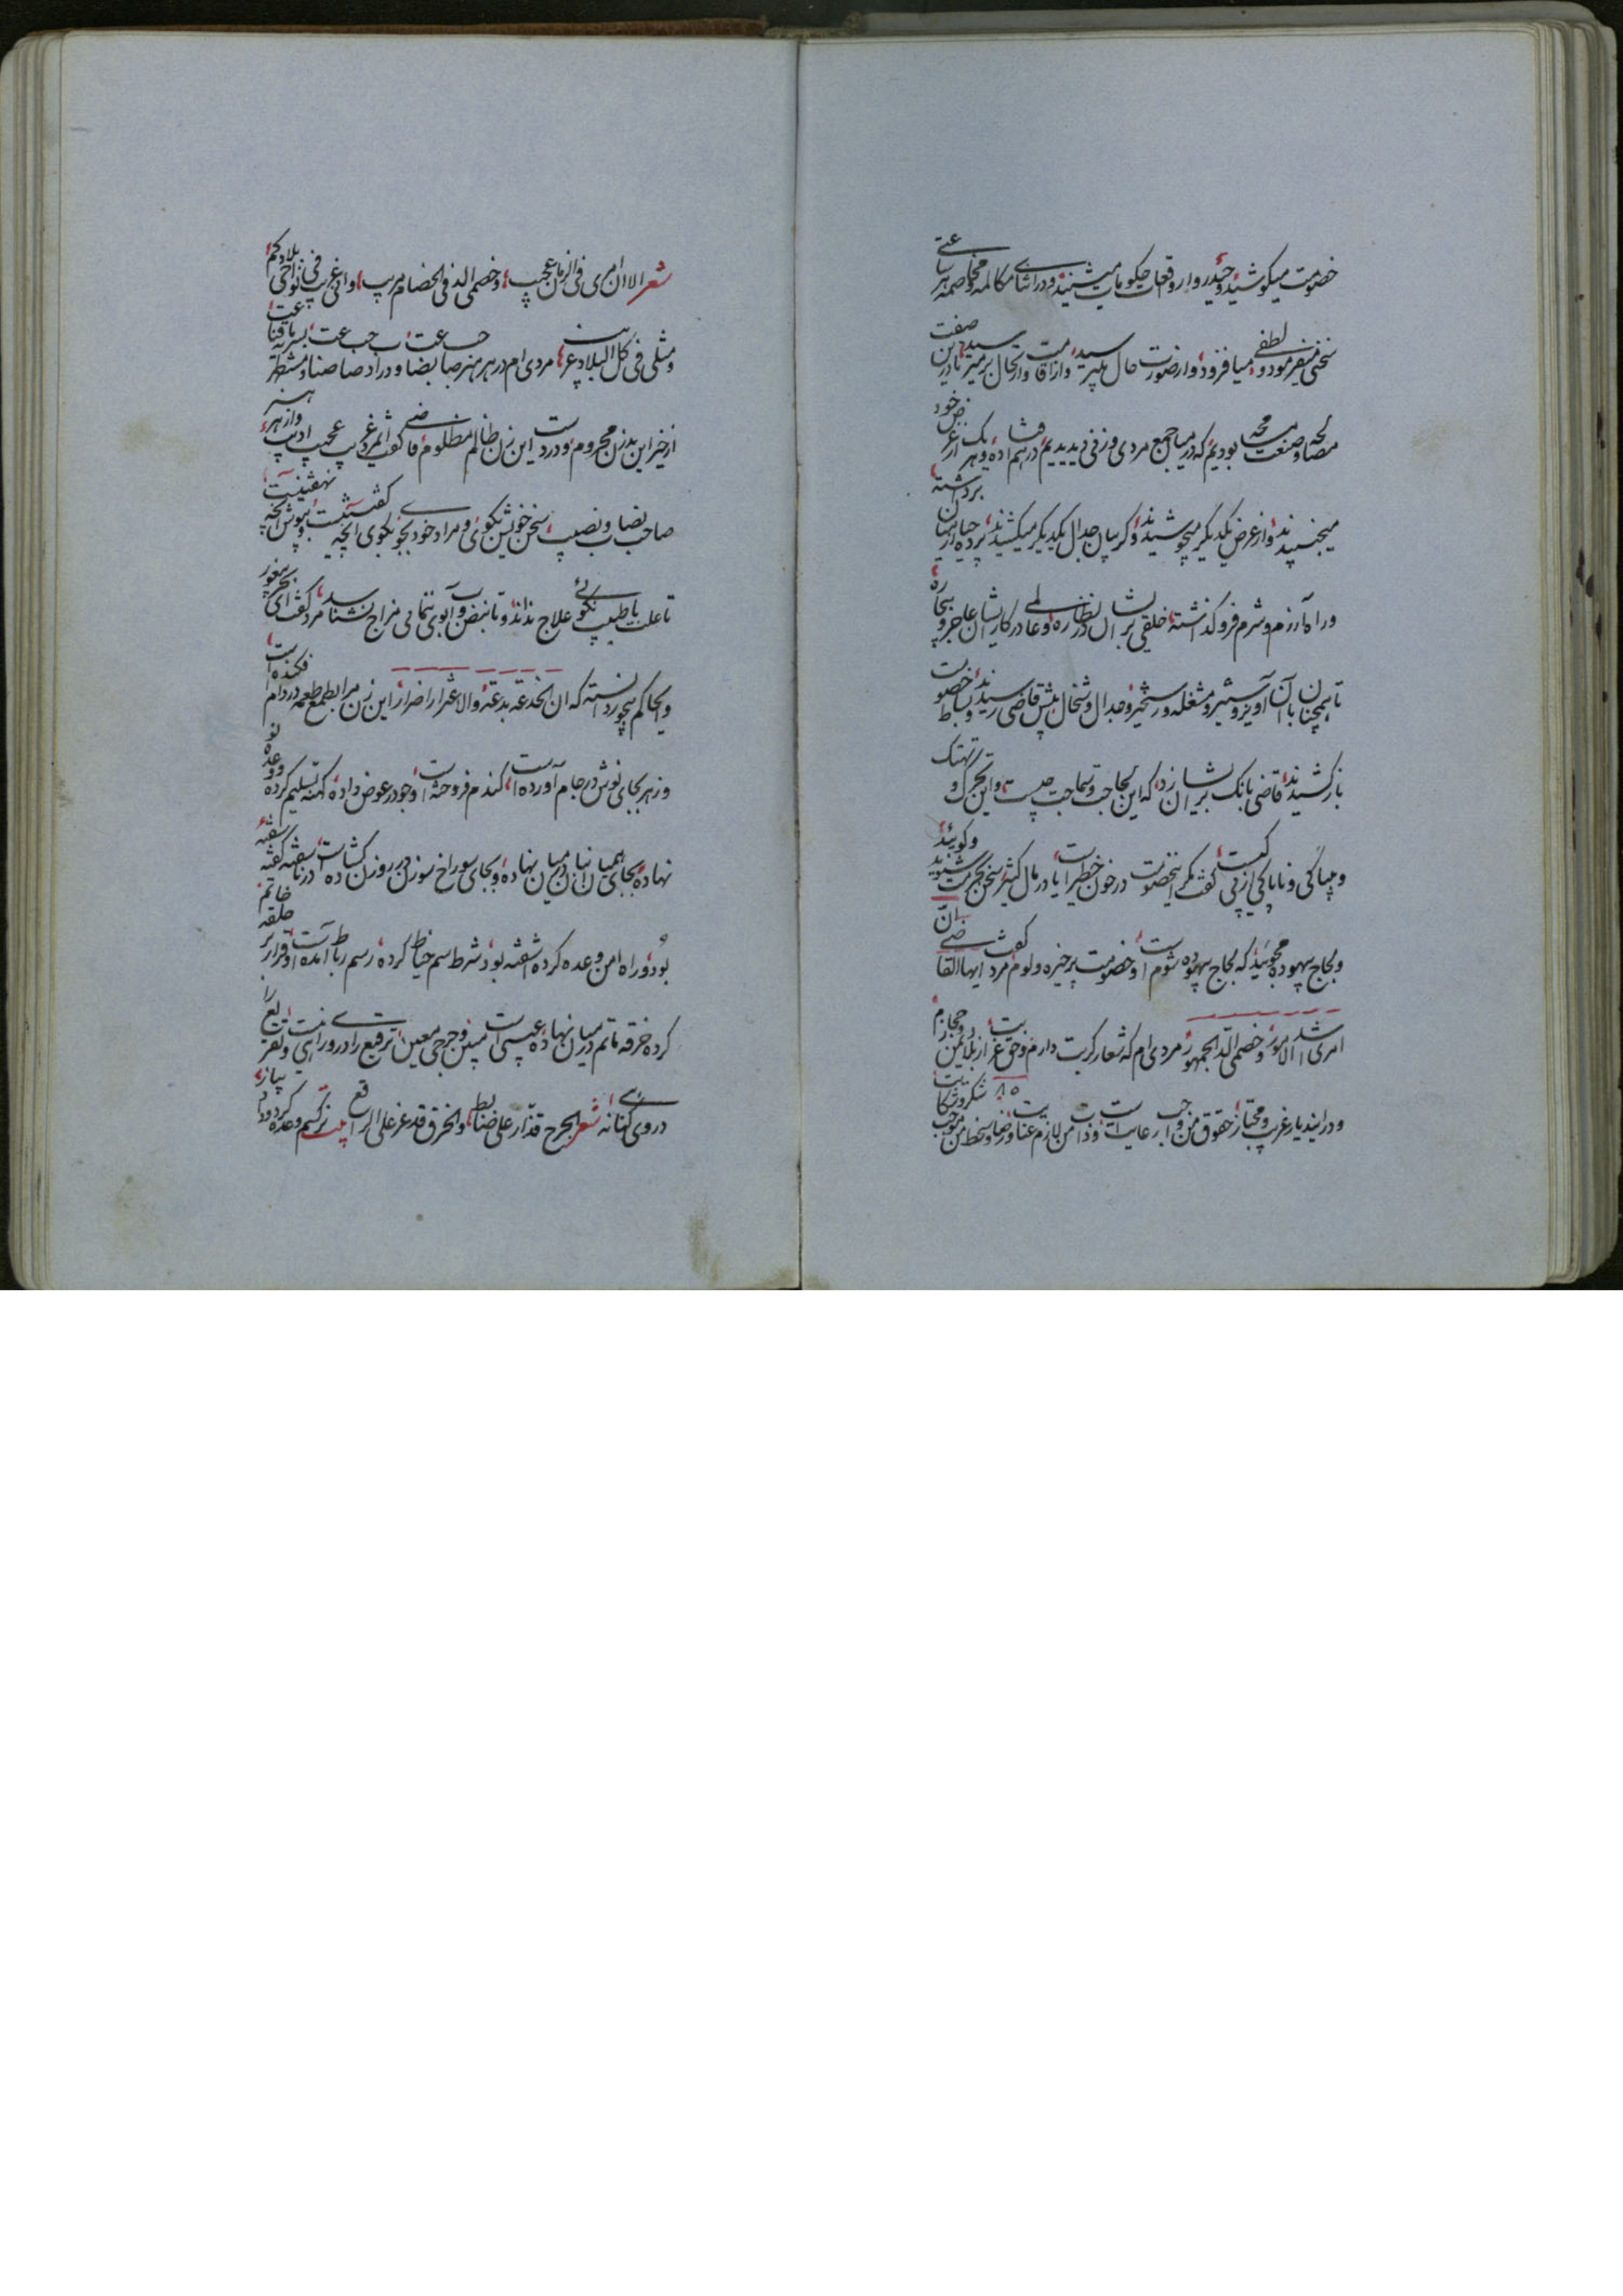 خصومت میکوشید و حید روار وقعات حکومات میشنید و در اثنای مکالمه و مخاصمه هر ساعتی
سخنی میفرمود و لطفی میافزود و از صورت حال میپرسید و از اقامت و ارتحال برمیرسید تا درین صفت
مصالحه و صنعت مسامحه بودیم که در میان جمع مردی و زنی دیدیم درهم افتاده و هر یک از عرض خود
میجنبیدند و از غرض یکدیگر میجوشیدند و گریبان جدال یکدیگر میکشیدند پرده حیا از میان برداشته
و راه آزرم و شرم فرو گذاشته خلقی بر ایشان در نظاره و عالمی در کار ایشان عاجز و بیچاره
تا همچنان با آن آویز و ستیز و مشغله و رستخیز و جدال و شخال پیش قاضی رسیدند و بساط خصومت
باز کشیدند قاضی بانگ بر ایشان زد که این لجاجت و سماجت چیست و این تحرک و تهتک
و بیباکی و ناپاکی از پی کیست گفت مگر این خصومت در خون خطیر است یا در مال کثیر سخن بحرمت شنوید و گوئید
و لجاج بیهوده مجوئید که لجاج بیهوده شوم است و خصومت بر خیره و لوم مرد گفت ایها القاضی ان
امری اشد الامور و خصمی الد الجمهور مردی ام که شعار کربت دارم و حق غربت از بلاد یمن و حجازم
و در این دیار غریب و مجتاز حقوق من واجب رعایت است و ذات من لازم عنایت و رضا و سخط من موجب شکر و شکایت
شعر الا ان امری فی الزمان عجیب و خصمی الد فی الخصام مریب و انی غریب فی نواحی بلادکم
و مثلی فی کل البلاد غریب مردی ام در هر هنر صاحب بضاعت و در ادب صاحب صناعت بسر به قناعت و مستظهر
از خیر این بد زن محرومم و در دست این زن ظالم مظلوم قاضی گفت ای مرد غریب عجیب ادیب و از هر هنر
صاحب بضاعت و نصیب سخن خویش بگوی و مراد خود بجوی بگوی آنچه گفتنیست و بپوش آنچه نهفتنیست
تا علت با طبیب نگوئی علاج نداند و تا نبض و آب بوی ننمائی مزاج نشناسد مرد گفت ای بحر پیغور
و ایحاکم بیجور دانسته که ان الخدعة بدعة و الاغترار اضرار این زن مرا بطمع طعمه در دام افکنده است
و زهر بجای نوش در جام آورده است گندم فروخته است و جو در عوض داده کهنه تسلیم کرده و وعده نو
نهاده بجای همیان انبان در میان نهاده و بجای سوراخ سوزن در روزن گشاده است درنا سفته گفته سفته
بود و راه امن وعده کرده آشفته بود شرط سم خیاط کرده رسم رباط آمده است و قرار بر حلقه خاتم
کرده خرقه ماتم در میان نهاده عیبی است مبین و جرحی معین ترقیع را در وی راهی نیست و تقریع را
در وی گناهی نه شعر الجرح قد زار علی ضابط و الخرق قد غر علی الراقع بیت نرگسم وعده کرد و داد پیاز